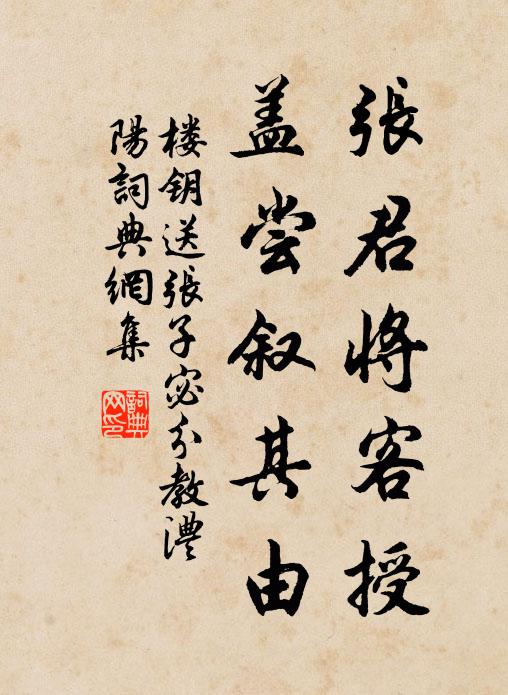 張君将客授
盖尝叙其由
楼钥送張子宓分教澧
陽詞典網集
詞典
网印